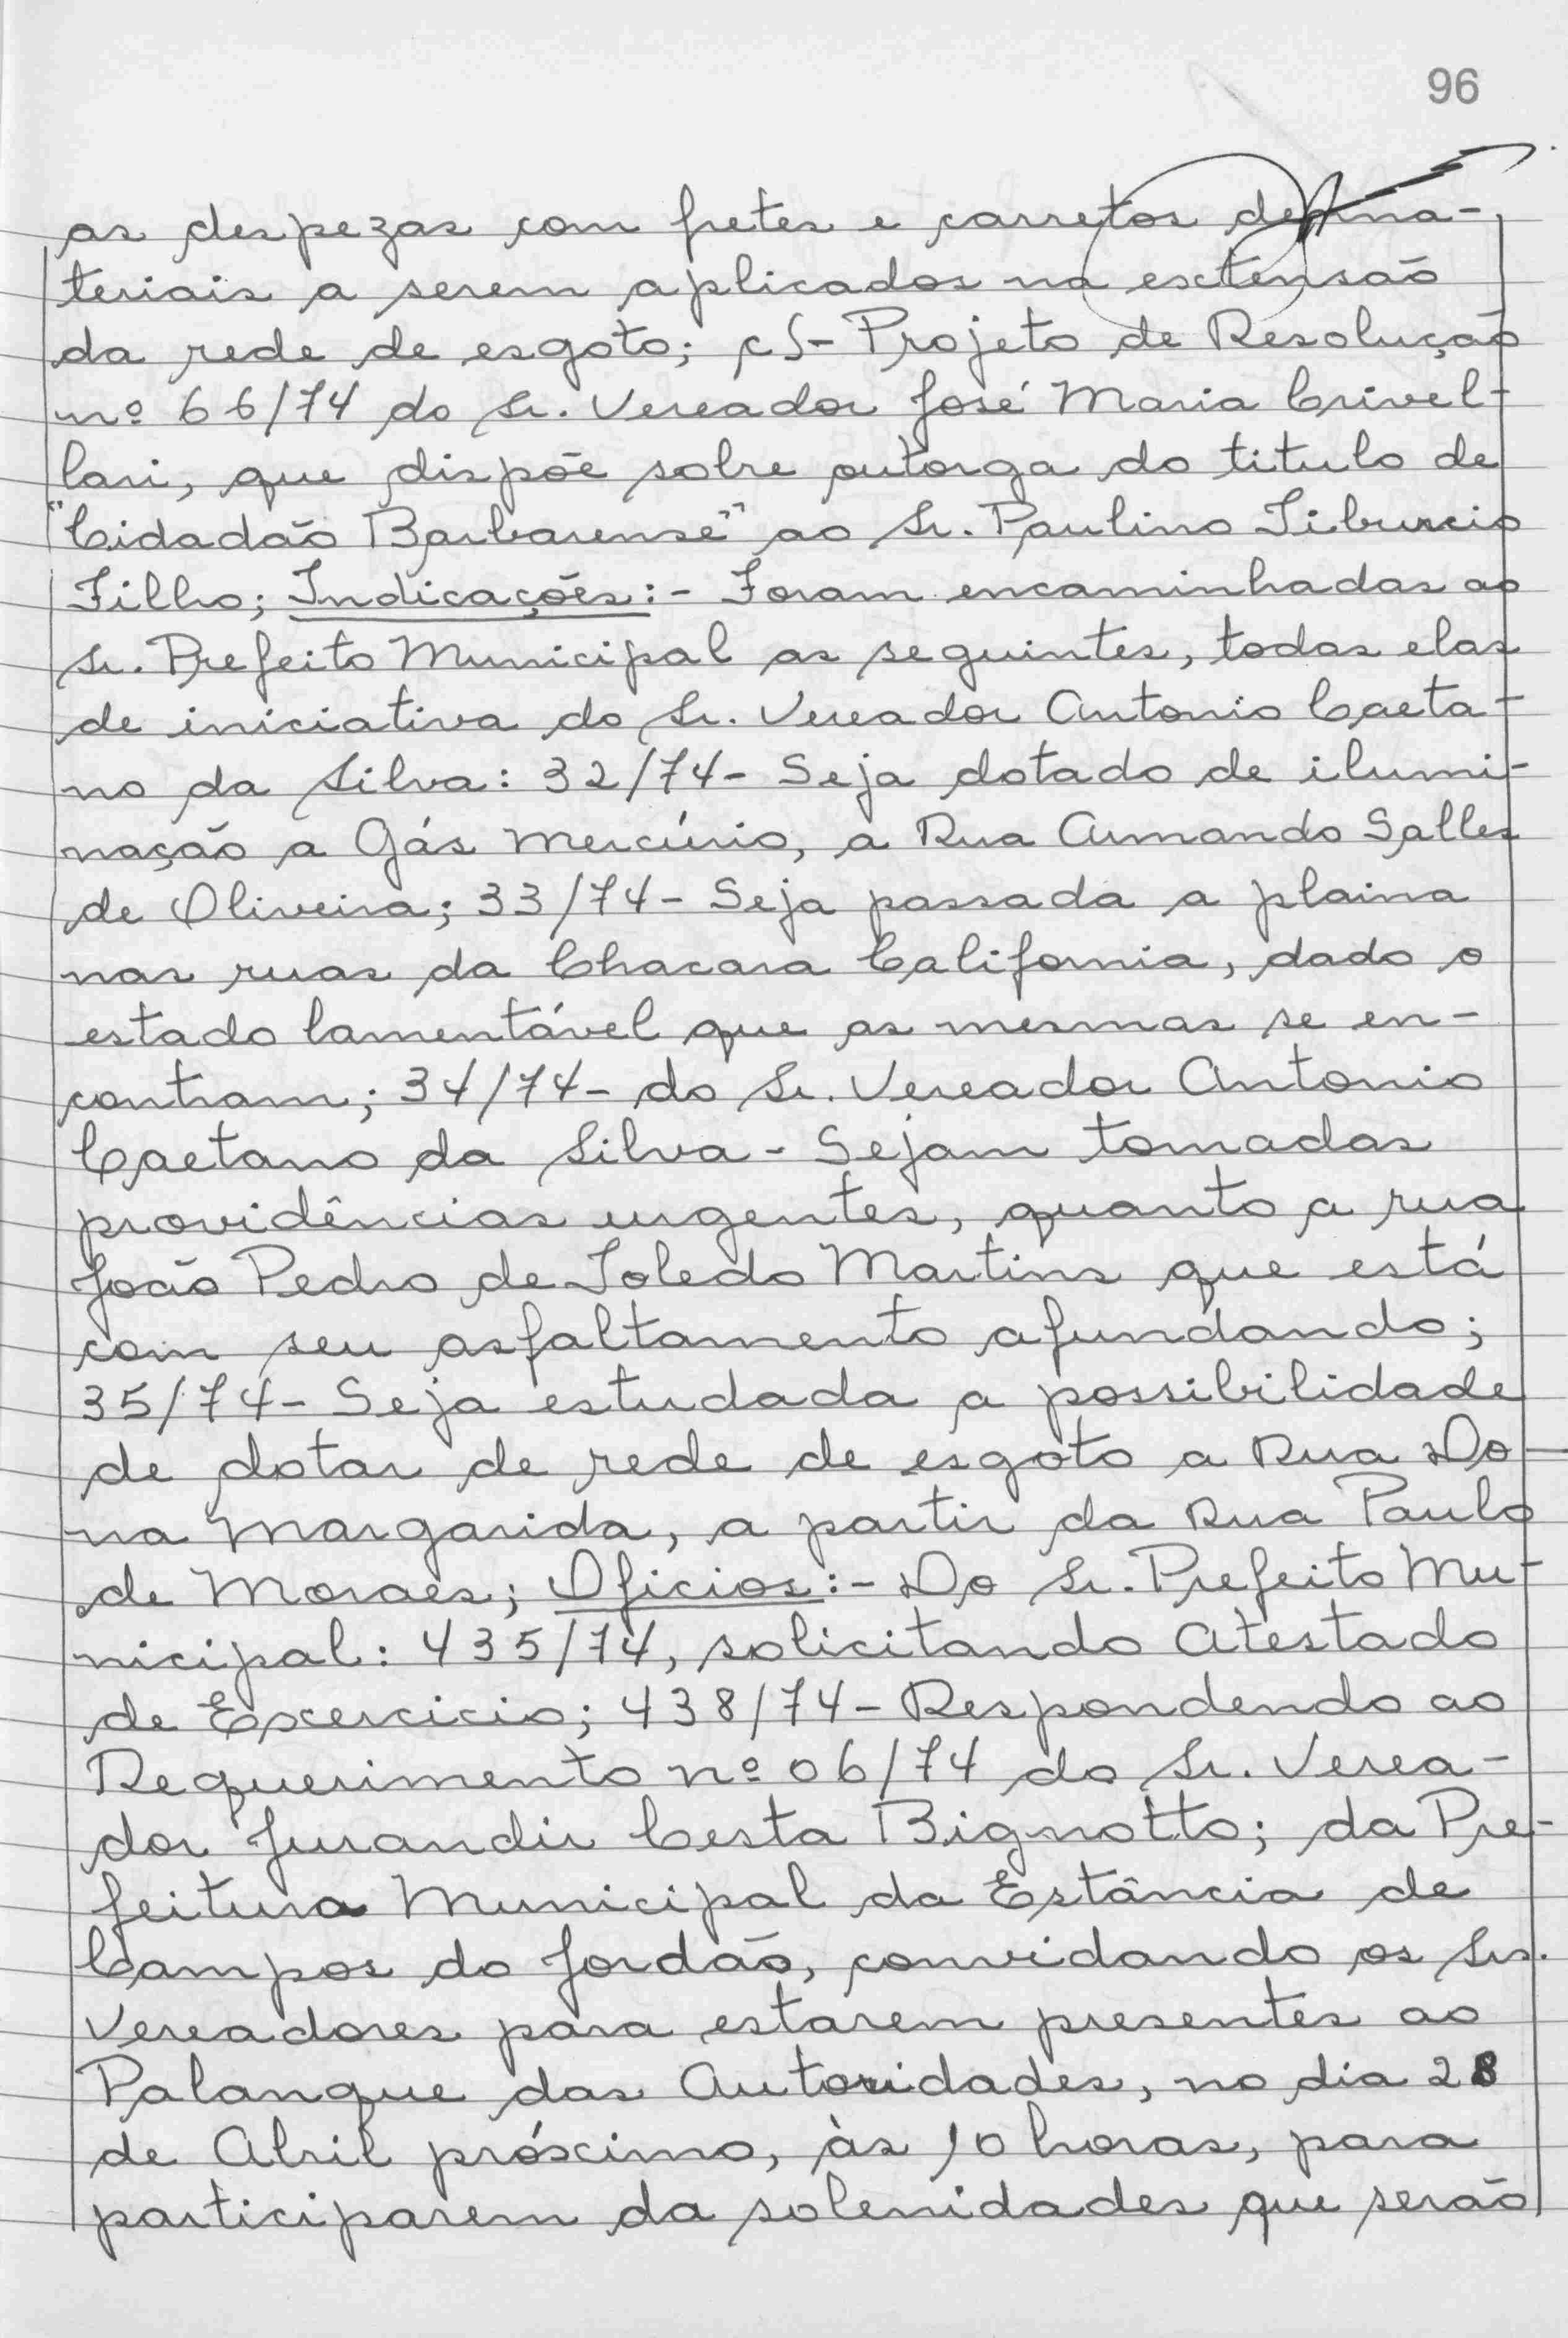 96
as despezas com fretes e carretos de ma-
teriais a serem aplicados na extensão
da rede de esgoto; c)- Projeto de Resolução
nº 66/74 do Sr. Vereador José Maria Crivel-
lari, que dispõe sobre outorga do titulo de
"Cidadão Barbarense" ao Sr. Paulino Tiburcio
Filho; Indicações:- Foram encaminhadas ao
Sr. Prefeito Municipal as seguintes, todas elas
de iniciativa do Sr. Vereador Antonio Caeta-
no da Silva: 32/74- Seja dotado de ilumi-
nação a Gás Mercúrio, a Rua Armando Salles
de Oliveira; 33/74- Seja passada a plaina
nas ruas da Chacara California, dado o
estado lamentável que as mesmas se en-
contram; 34/74- do Sr. Vereador Antonio
Caetano da Silva- Sejam tomadas
providências urgentes, quanto a rua
João Pedro de Toledo Martins que está
com seu asfaltamento afundando;
35/74- Seja estudada a possibilidade
de dotar de rede de esgoto a Rua Do-
na Margarida, a partir da Rua Paulo
de Moraes; Oficios:- Do Sr. Prefeito Mu-
nicipal: 435/74, solicitando Atestado
de Excercicio; 438/74- Respondendo ao
Requerimento nº 06/74 do Sr. Verea-
dor Jurandir Cesta Bignotto; da Pre-
feitura Municipal da Estância de
Campos do Jordão, convidando os Srs.
Vereadores para estarem presentes ao
Palanque das Autoridades, no dia 28
de Abril próximo, às 10 horas, para
participarem da solenidades que serão